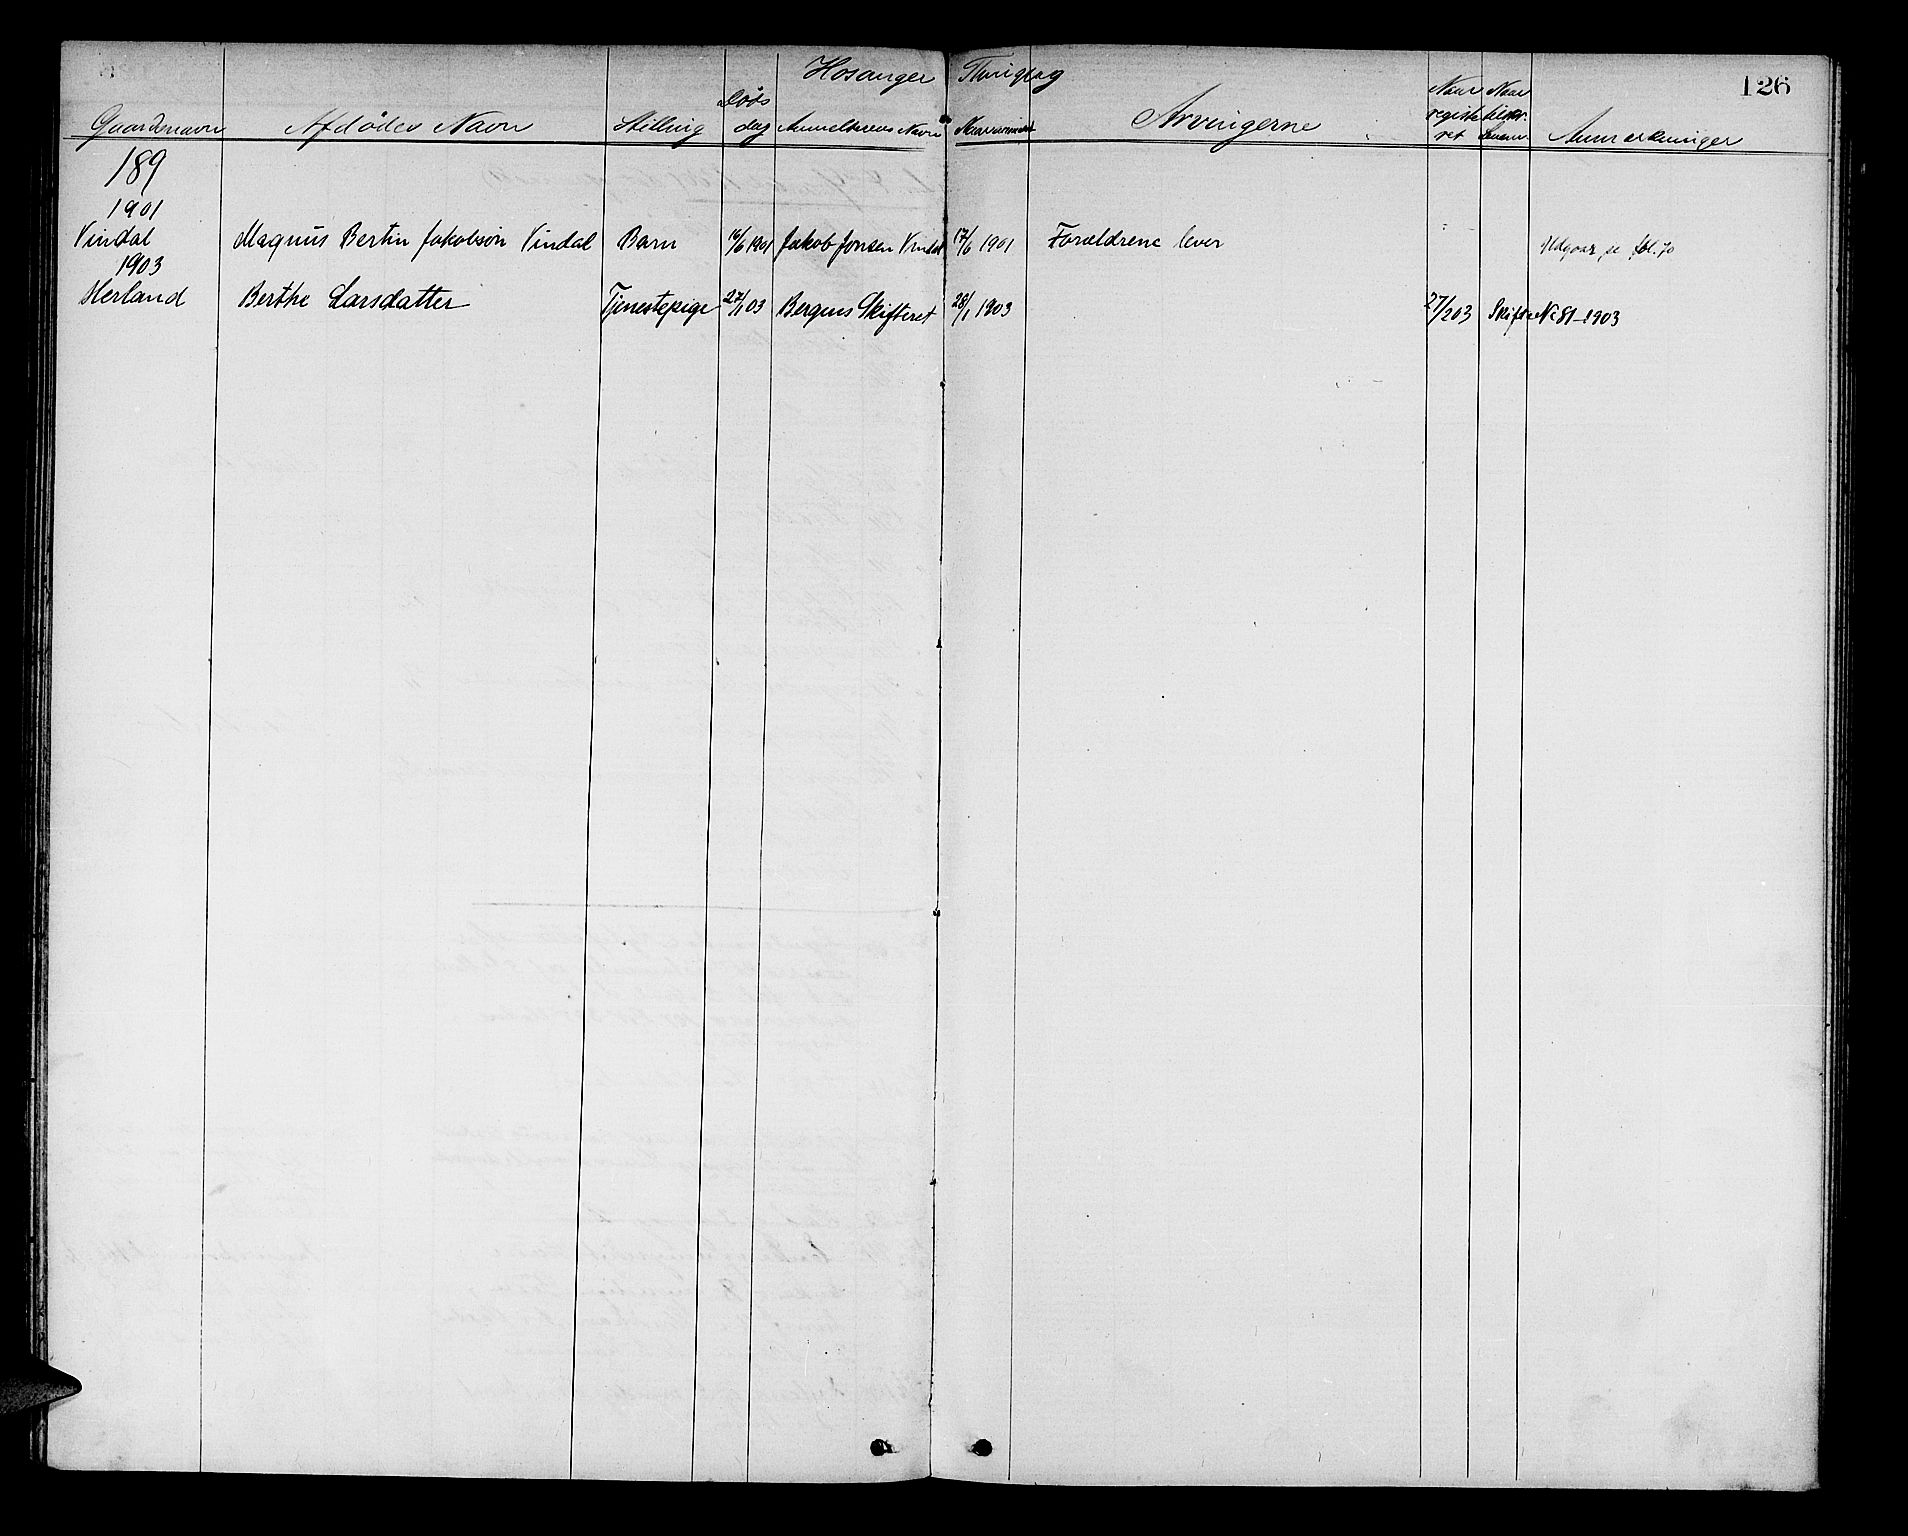 Hosanger Thinglag
126
Gaardenavn Afdødes Navn Stilling Døds dag Anmelderens Navn Naar anmeldt Arvingerne Naar registeret Naar Anmærkninger
189
1901
Vindal Magnus Bertin Jakobson Vindal Barn 16/6 1901 Jakob Jonsen Vindal 17/6 1901 Forældrene lever Udgaar se fol. 70
1903
Herland Berthe Larsdatter Tjenestepige 27/1 03 Bergens Skifteret 28/1 1903 27/2 03 Skifte No 81-1903